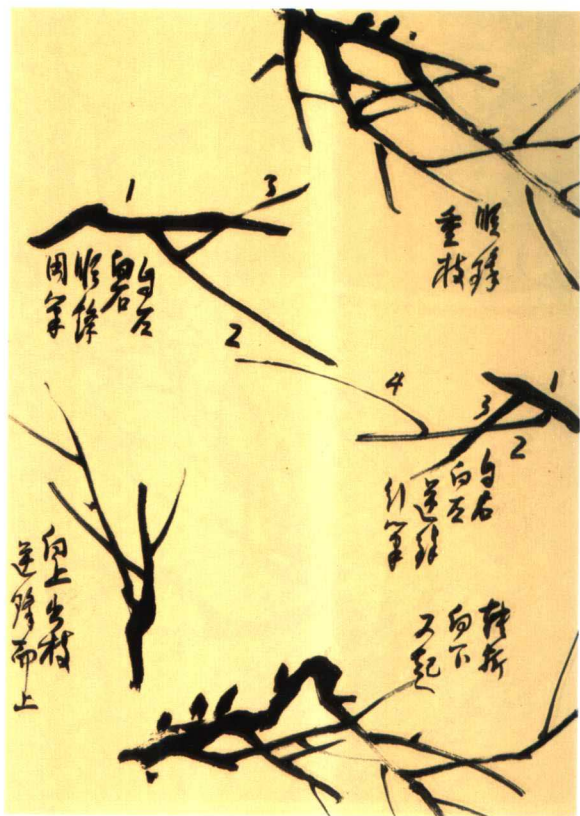 顺锋
垂枝
1
3
2
自左
向右
顺锋
用笔
1
2
3
4
自右
向左
逆锋
行笔
向上出枝
逆锋而上
转折
向下
又起